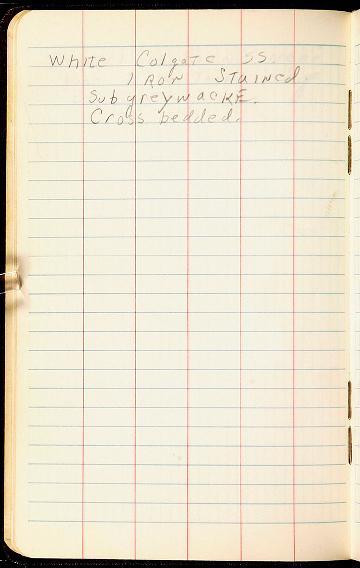 White Colgate SS.
IRON STAINED
Subgreywacke.
Cross bedded.